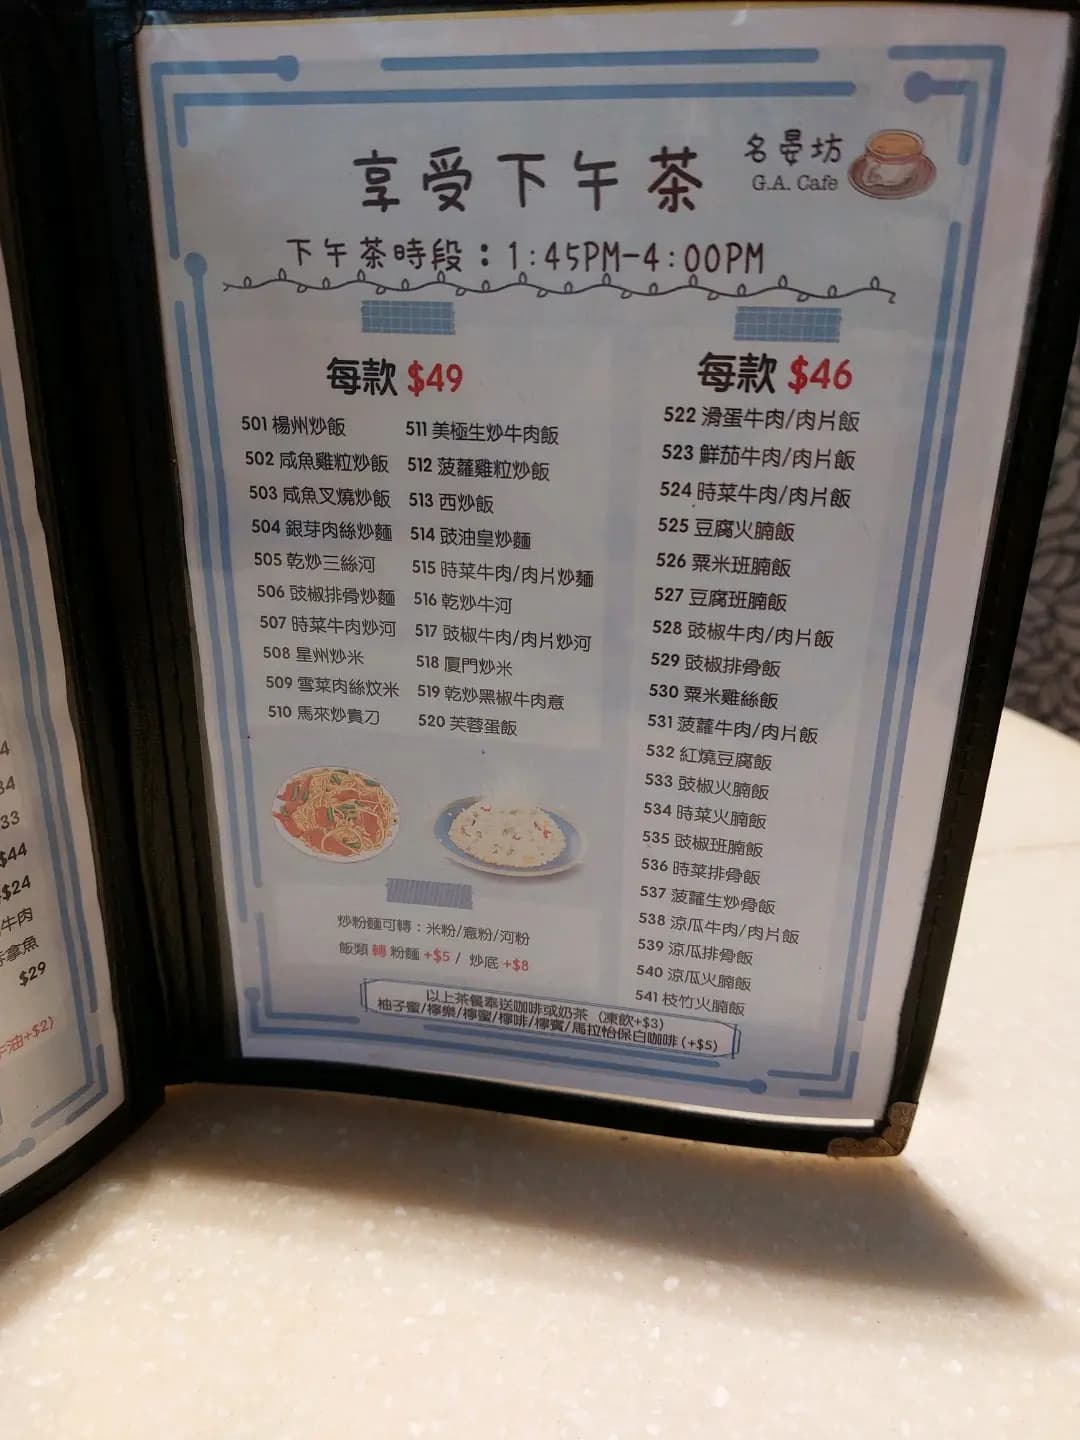 名晏坊
G.A. Cafe
享受下午茶
下午茶時段：1:45PM-4:00PM
每款 $49
501 楊州炒飯
502 咸魚雞粒炒飯
503 咸魚叉燒炒飯
504 銀芽肉絲炒麵
505 乾炒三絲河
506 豉椒排骨炒麵
507 時菜牛肉炒河
508 星州炒米
509 雪菜肉絲炆米
510 馬來炒貴刁
511 美極生炒牛肉飯
512 菠蘿雞粒炒飯
513 西炒飯
514 豉油皇炒麵
515 時菜牛肉/肉片炒麵
516 乾炒牛河
517 豉椒牛肉/肉片炒河
518 厦門炒米
519 乾炒黑椒牛肉意
520 芙蓉蛋飯
每款 $46
522 滑蛋牛肉/肉片飯
523 鮮茄牛肉/肉片飯
524 時菜牛肉/肉片飯
525 豆腐火腩飯
526 粟米班腩飯
527 豆腐班腩飯
528 豉椒牛肉/肉片飯
529 豉椒排骨飯
530 粟米雞絲飯
531 菠蘿牛肉/肉片飯
532 紅燒豆腐飯
533 豉椒火腩飯
534 時菜火腩飯
535 豉椒班腩飯
536 時菜排骨飯
537 菠蘿生炒骨飯
538 涼瓜牛肉/肉片飯
539 涼瓜排骨飯
540 涼瓜火腩飯
541 枝竹火腩飯
炒粉麵可轉：米粉/意粉/河粉
飯類 轉 粉麵 +$5 / 炒底 +$8
以上茶餐奉送咖啡或奶茶 (凍飲+$3)
柚子蜜/檸樂/檸蜜/檸啡/檸賓/馬拉怡保白咖啡 (+$5)
4
34
33
$44
$24
牛肉
拿魚
$29
油+$2)